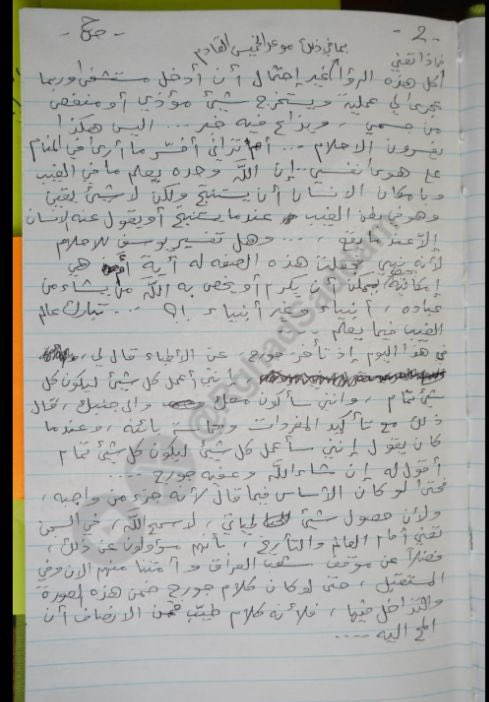 - 2 -
بما في ذلك موعد الخميس القادم
ماذا تعني
كل هذه الرؤيا غير إحتمال أن أدخل مستشفى وربما
تجرى لي عملية ويستخرج شيئ مؤذي أو منغص
من جسمي ، وينزاح فيه خير ... أليس هكذا
يفسرون الاحلام ... أم تراني أفسّر ما أرى في المنام
على هوى نفسي .. إن الله وحده يعلم ما في الغيب
وبإمكان الانسان أن يستنتج ولكن لا شيئ يقين
وهو في بطن الغيب عندما يستنتج أو يقول عنه الإنسان
إلا عندما يقع ، ... وهل تفسير يوسف للاحلام
لأنه نبي فجعلت هذه الصفة له آية أم هي
إمكانية يمكن أن يكرم أو يخص به الله من يشاء من
عباده ، أنبياء وغير أنبياء !؟ ... تبارك عالم
الغيب فيما يعلم ...
في هذا اليوم إذ تأخر جورج ، عن الأطباء قال لي ،
إنني أعمل كل شيئ ليكون كل
شيئ تمام ، وانني سأكون معك والى جنبك ، قال
ذلك مع تأكيد المفردات وعندما
كان يقول إنني سأعمل كل شيئ ليكون كل شيئ تمام
أقول له إن شاء الله وعفيه جورج ...
فحتى لو كان الأساس فيما قال لأنه جزء من واجبه ،
ولأن حصول شيئ لحياتي ، لا سمح الله ، في السجن
تعني أمام العالم والتأريخ ، بأنهم مسؤولون عن ذلك ،
فضلاً عن موقف شعب العراق و أمتنا منهم الان وفي
المستقبل ، حتى لو كان كلام جورج ضمن هذه الصورة
والتداخل فيها ، فلأنه كلام طيّب فمن الانصاف أن
اليه ....